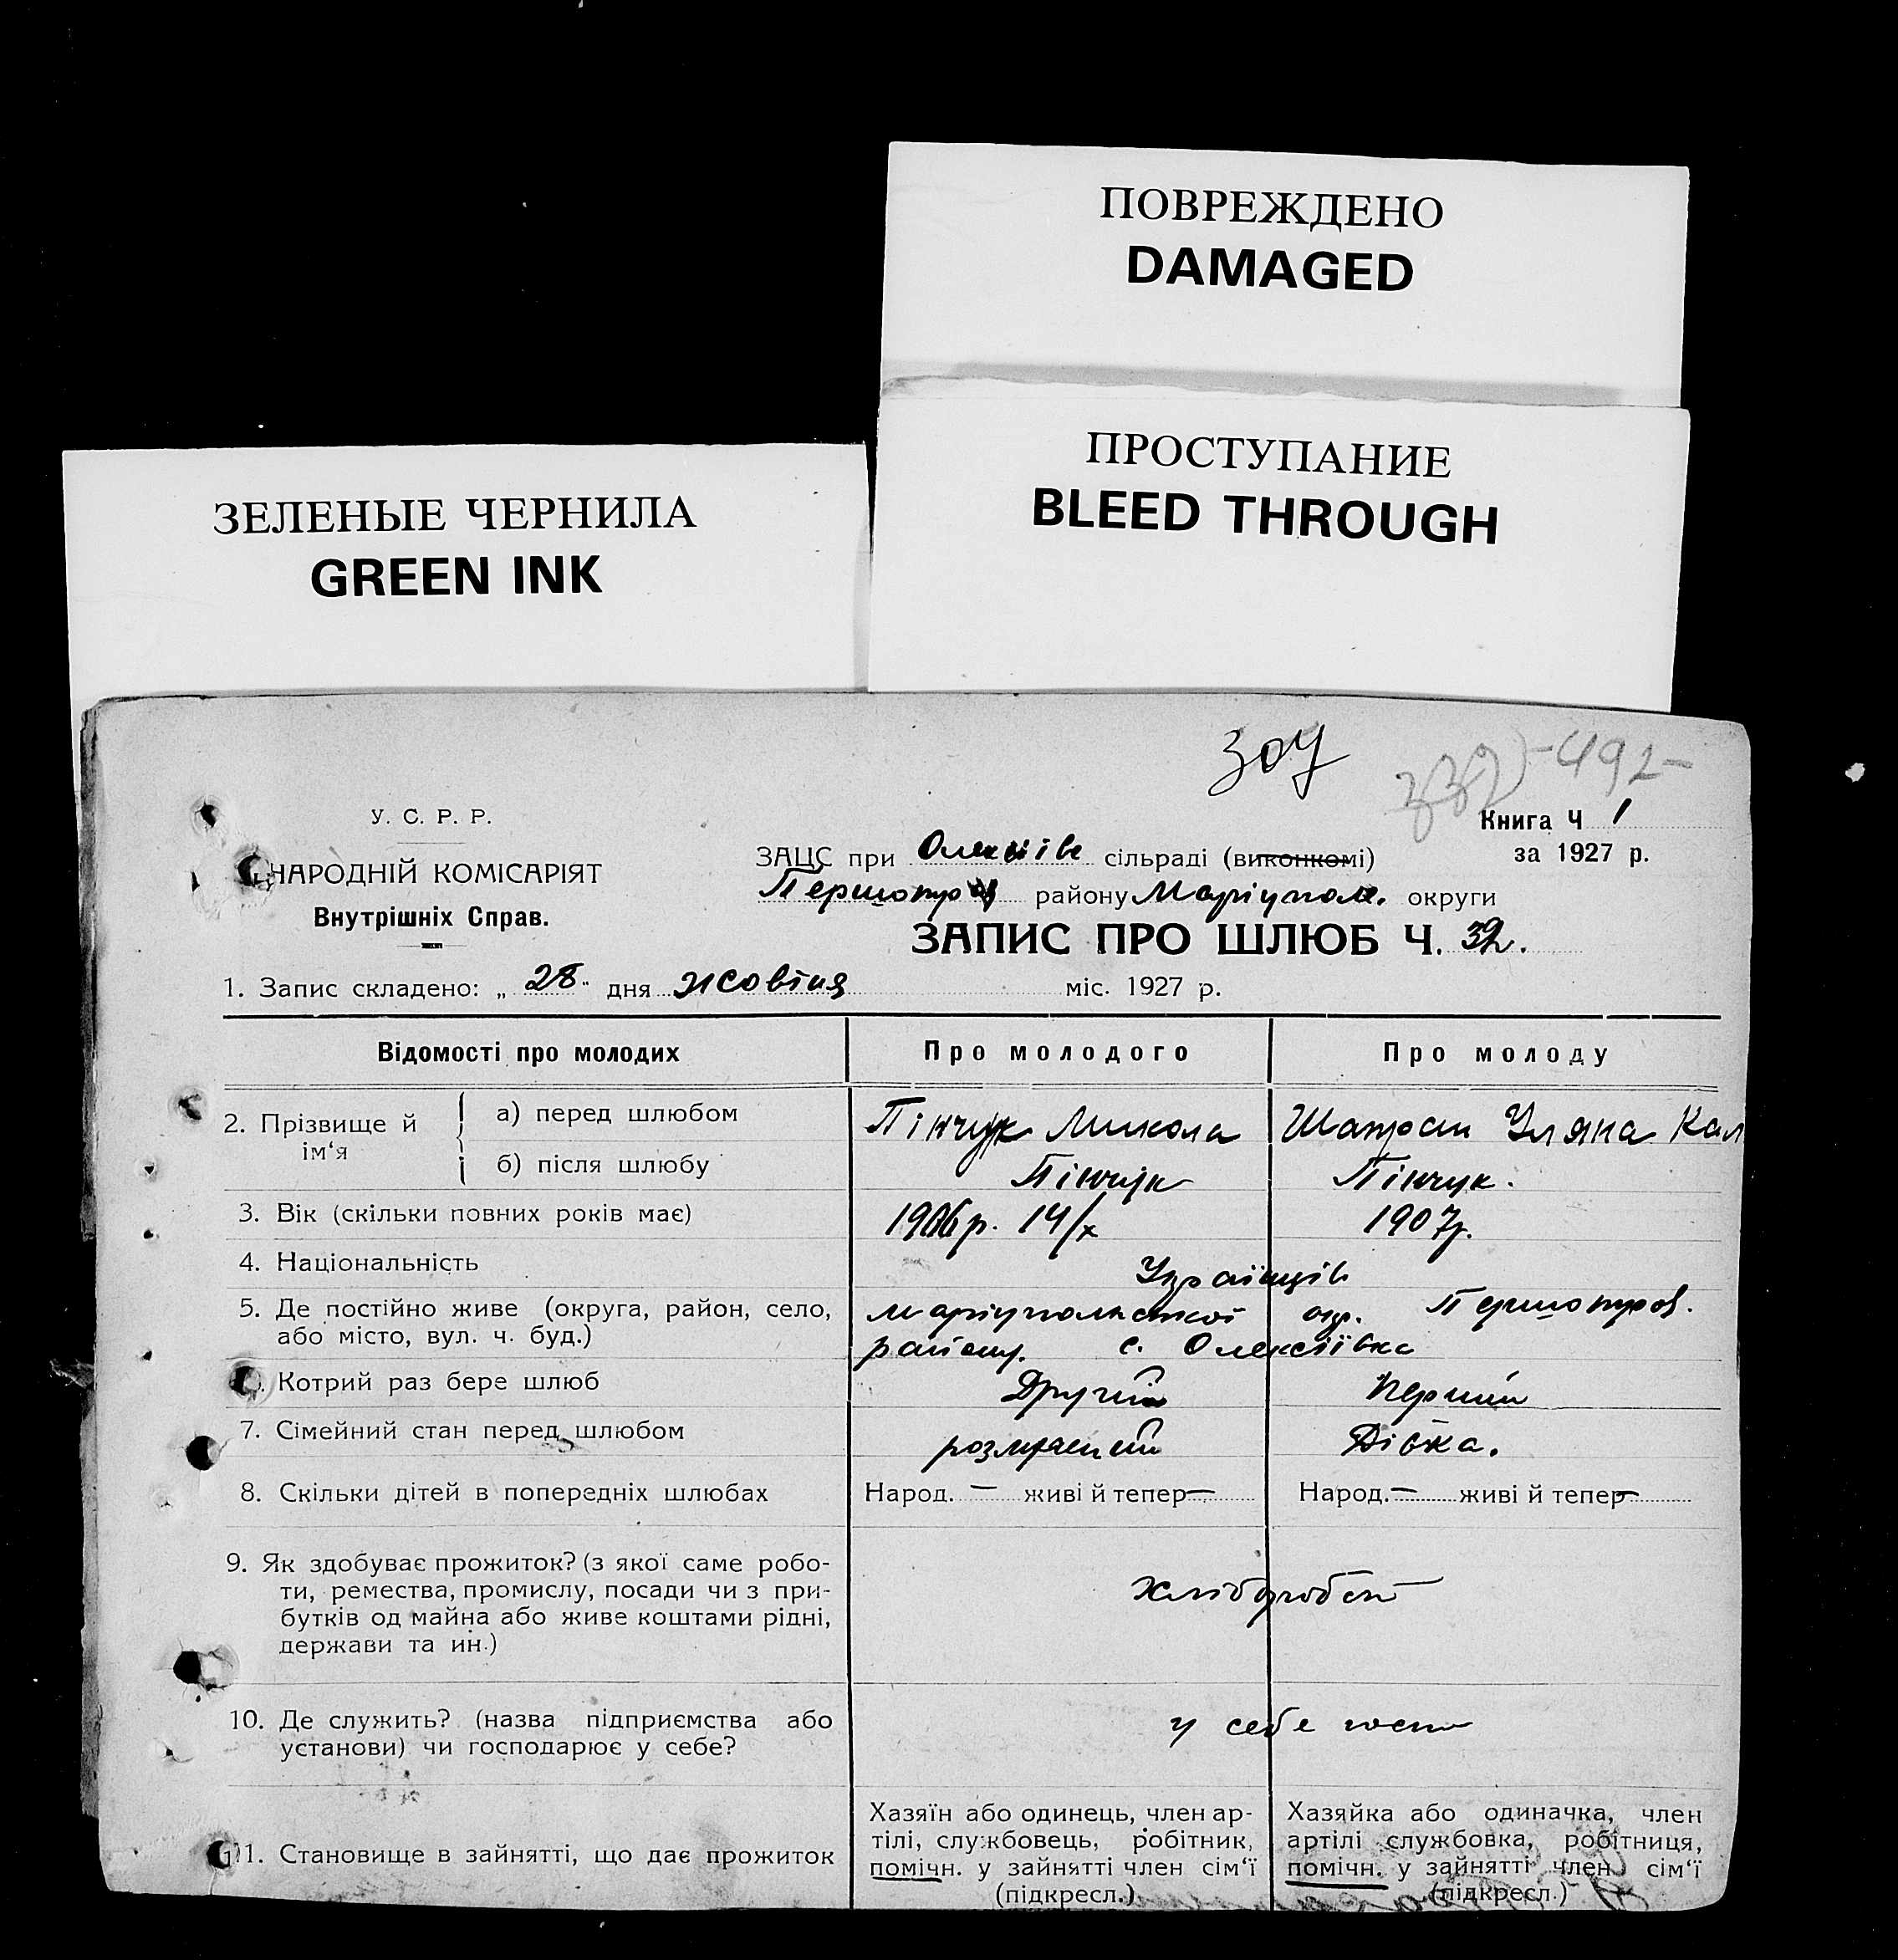 ПОВРЕЖДЕНО
DAMAGED
ПРОСТУПАНИЕ
BLEED THROUGH
ЗЕЛЕНЫЕ ЧЕРНИЛА
GREEN INK
307
337 -492-
У. С. Р. Р.
НАРОДНІЙ КОМІСАРІЯТ
Внутрішніх Справ.
Книга Ч 1
за 1927 р.
ЗАЦС при Олексіїв сільраді (виконкомі)
району Маріупол. округи
ЗАПИС ПРО ШЛЮБ Ч. 32.
1. Запис складено: „ 28 " дня жовтня міс. 1927 р.
Відомості про молодих
Про молодого
Про молоду
2. Прізвище й ім'я
а) перед шлюбом
Пінчук Микола
Шатран Уляна Кал
б) після шлюбу
Пінчук
Пінчук.
3. Вік (скільки повних років має)
1906р. 14/х
1907р.
4. Національність
Українців
5. Де постійно живе (округа, район, село,
або місто, вул. ч. буд.)
Маріупольської окр. Першотров.
району. с. Олексіївка
Котрий раз бере шлюб
Другий
Перший
7. Сімейний стан перед шлюбом
Дівка.
8. Скільки дітей в попередніх шлюбах
Народ. — живі й тепер —
Народ. — живі й тепер —
9. Як здобуває прожиток? (з якої саме робо-
ти, ремества, промислу, посади чи з при-
бутків од майна або живе коштами рідні,
держави та ин.)
10. Де служить? (назва підприємства або
установи) чи господарює у себе?
у себе госп
11. Становище в зайнятті, що дає прожиток
Хазяїн або одинець, член ар-
тілі, службовець, робітник,
помічн. у зайнятті член сім'ї
(підкресл.)
Хазяйка або одиначка, член
артілі службовка, робітниця,
помічн. у зайнятті член сім'ї
(підкресл.)